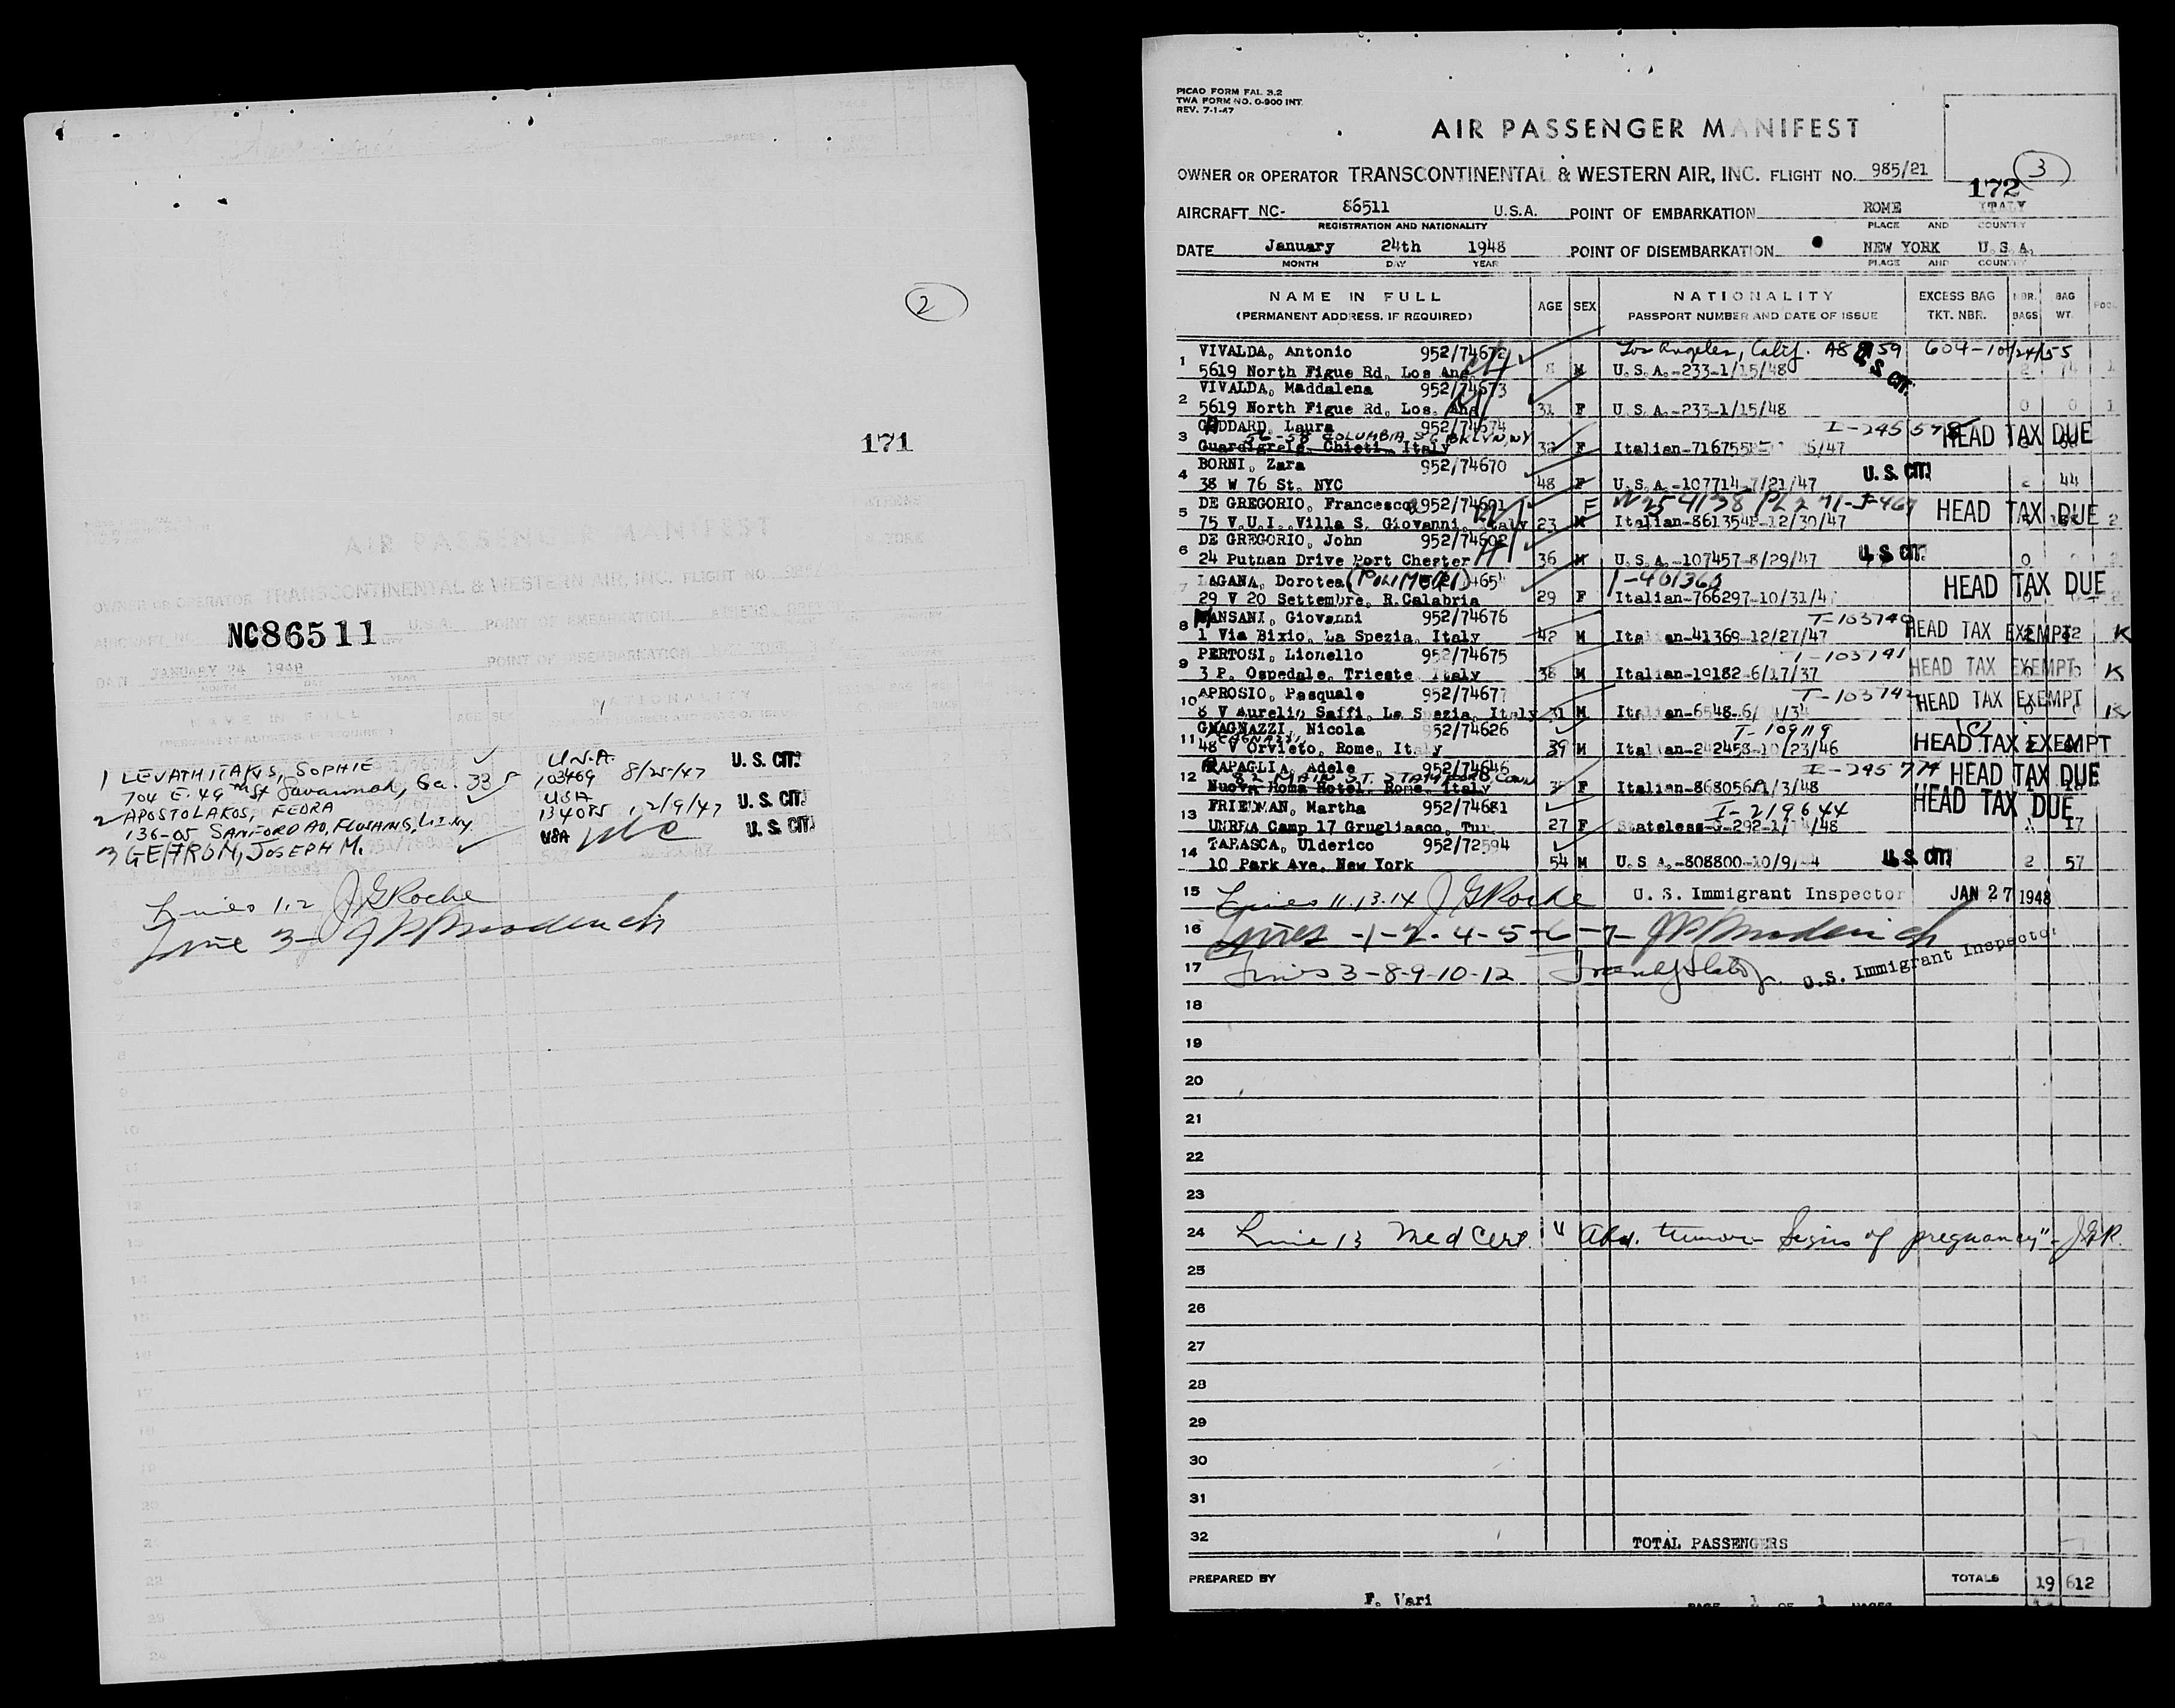 2
171
AIR PASSENGER MANIFEST
OWNER OR OPERATOR TRANSCONTINENTAL & WESTERN AIR, INC. FLIGHT NO.
AIRCRAFT NC- U.S.A. POINT OF EMBARKATION
NC86511
DATE JANUARY 24 1948 POINT OF DISEMBARKATION
MONTH DAY YEAR
NAME IN FULL AGE
(PERMANENT ADDRESS, IF REQUIRED)
1 LEVATHITAKIS, SOPHIE U.S.A. U.S. CIT.
704 E. 49th St Savannah, Ga. 33 103469 8/25/47
2 APOSTOLAKOS, FEDRA USA U.S. CIT.
136-05 SANFORD AV, FLUSHING, L.I. NY 134085 12/9/47
3 GEFFRON, JOSEPH M. USA U.S. CIT.
Lines 1.2 J G Roche
Line 3-
PICAO FORM FAL 3.2
TWA FORM NO. O-900 INT.
REV. 7-1-47
AIR PASSENGER MANIFEST
3
OWNER OR OPERATOR TRANSCONTINENTAL & WESTERN AIR, INC. FLIGHT NO. 985/21
172
AIRCRAFT NC- 86511 U.S.A. POINT OF EMBARKATION ROME ITALY
REGISTRATION AND NATIONALITY PLACE AND COUNTRY
DATE January 24th 1948 POINT OF DISEMBARKATION NEW YORK U.S.A.
MONTH DAY YEAR PLACE AND COUNTRY
NAME IN FULL AGE SEX NATIONALITY EXCESS BAG NBR. BAG
(PERMANENT ADDRESS, IF REQUIRED) PASSPORT NUMBER AND DATE OF ISSUE TKT. NBR. BAGS WT. POOL
1 VIVALDA, Antonio 952/74672 Los Angeles, Calif. 604-10/24/55
5619 North Figue Rd, Los Ang. 8 M U.S.A.-233-1/15/48 U.S. CIT. 2 74 1
2 VIVALDA, Maddalena 952/74673
5619 North Figue Rd, Los. Ang 31 F U.S.A.-233-1/15/48 0 0 1
3 GODDARD, Laura 952/74674 I-245578
56-58 COLUMBIA ST BKLYN NY HEAD TAX DUE
Guardigrele, Chieti, Italy 32 F Italian-716755P
4 BORNI, Zara 952/74670 U.S. CIT.
38 W 76 St. NYC 48 F U.S.A.-107714-7/21/47 44
5 DE GREGORIO, Francesca 952/74601 F HEAD TAX DUE
75 V.U.I. Villa S. Giovanni, Italy 23 M Italian-861354P-12/30/47 2
6 DE GREGORIO, John 952/74602 U.S. CIT.
24 Putnan Drive Port Chester 36 M U.S.A.-107457-8/29/47 0
7 LAGANA, Dorotea (POLIMENI) I-401360 HEAD TAX DUE
29 V 20 Settembre, R.Calabria 29 F Italian-766297-10/31/4
8 MANSANI, Giovanni 952/74676 T-103740 HEAD TAX EXEMPT
1 Via Bixio, La Spezia, Italy 42 M Italian-41369-12/27/47 K
9 PERTOSI, Lionello 952/74675 T-103741 HEAD TAX EXEMPT
3 P. Ospedale, Trieste Italy 38 M Italian-19182-6/17/37 K
10 APROSIO, Pasquale 952/74677 T-103742 HEAD TAX EXEMPT
8 V Aurelio Saffi, La Spezia, Italy 31 M Italian-6548-6/ /34 K
11 GMAGNAZZI, Nicola 952/74626 T-10919
48 V Orvieto, Rome, Italy 39 M Italian-242458-10/23/46 HEAD TAX EXEMPT
12 RAPAGLIA, Adele 952/74646 I-245774 HEAD TAX DUE
82 MAIN ST. STAMFORD CONN
Nuova Roma Hotel, Rome, Italy F Italian-868056P-1/3/48
13 FRIEDMAN, Martha 952/74681 I-219644 HEAD TAX DUE
UNRRA Camp 17 Grugliasco, Tur. 27 F Stateless-G-292-1/ /48 17
14 TARASCA, Ulderico 952/72594
10 Park Ave. New York 54 M U.S.A.-808800-10/9/ U.S. CIT. 2 57
15 Lines 11.13.14 J G Roche U.S. Immigrant Inspector JAN 27 1948
16 Lines -1-2-4-5-6-7-
17 Lines 3-8-9-10-12 U.S. Immigrant Inspector
18
19
20
21
22
23
24 Line 13 Med Cert. "Abd. tumor- Signs of pregnancy"- JGR.
25
26
27
28
29
30
31
32 TOTAL PASSENGERS
PREPARED BY TOTALS 19 612
F. Vari PAGE 1 OF 1 PAGES